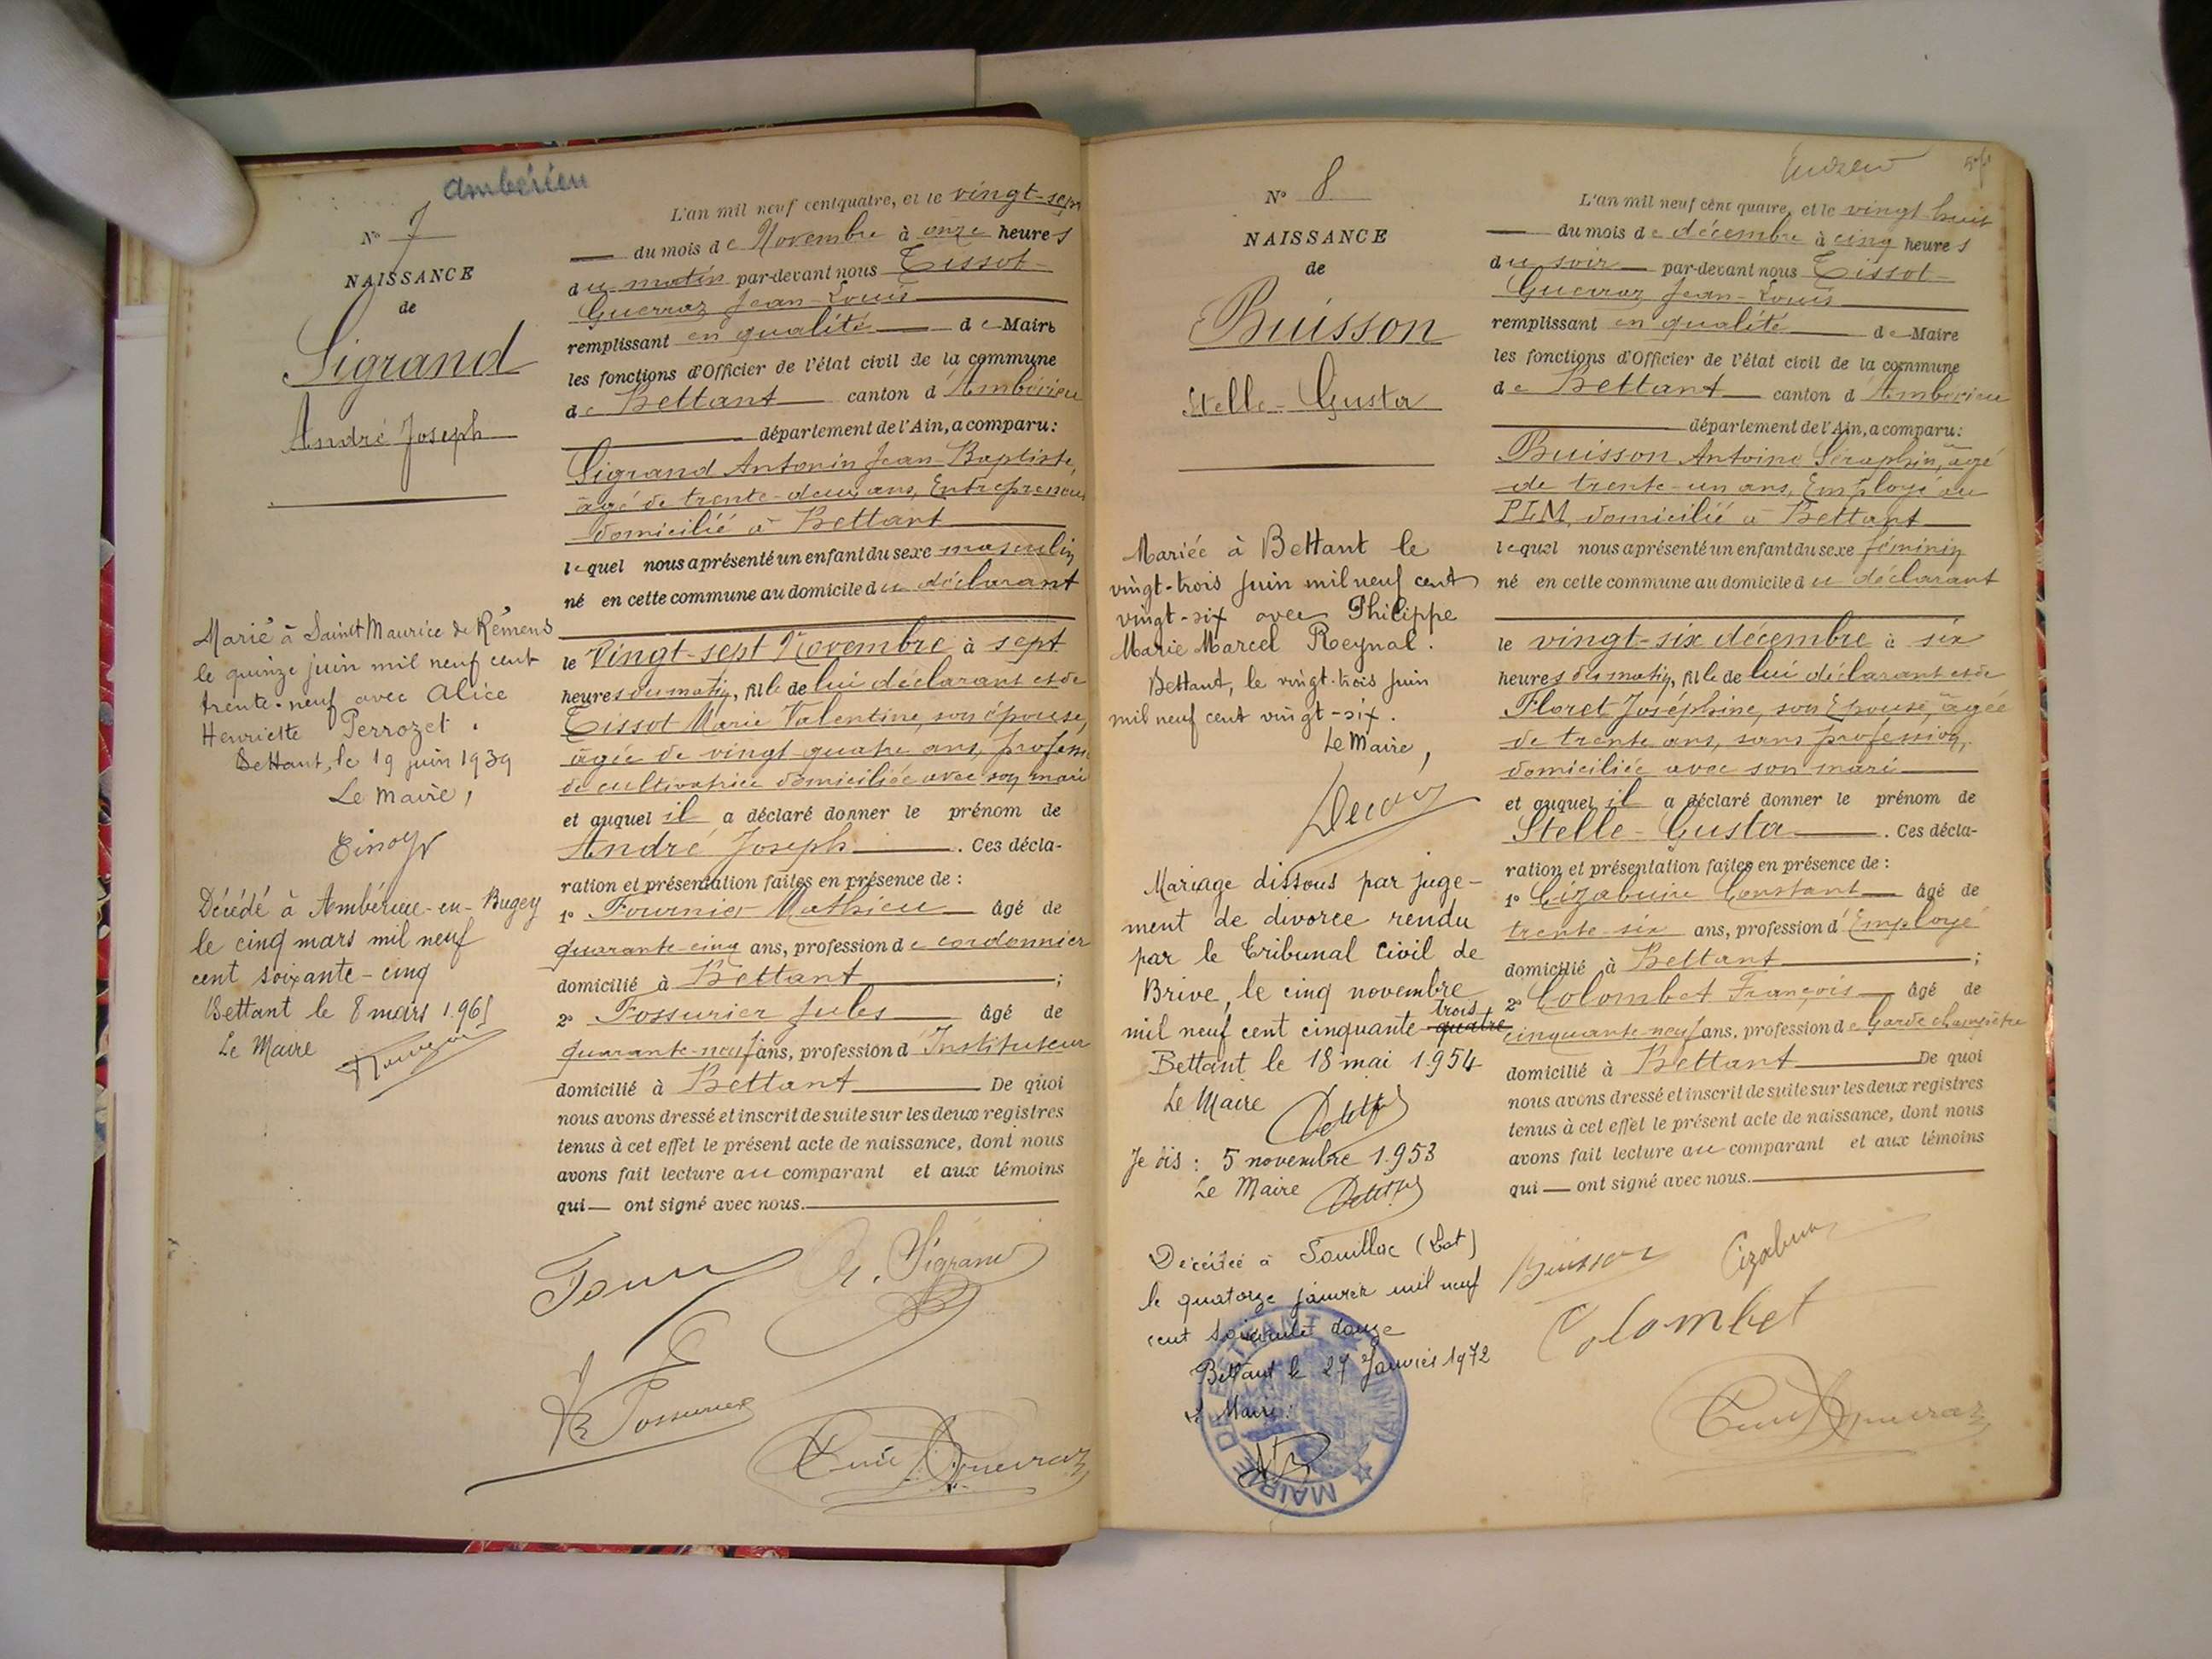 Ambérieu
N° 7
NAISSANCE
de
Sigrand
André Joseph
Marié à Saint Maurice de Rémens
le quinze juin mil neuf cent
trente-neuf avec Alice
Henriette Perrozet.
Bettant, le 19 juin 1939
Le Maire,
Décédé à Ambérieu-en-Bugey
le cinq mars mil neuf
cent soixante-cinq
Bettant le 8 mars 1965
Le Maire
L'an mil neuf cent quatre, et le vingt-sept
du mois de Novembre à onze heures
du matin par-devant nous Tissot-
Guerraz Jean-Louis
remplissant en qualité de Maire
les fonctions d'Officier de l'état civil de la commune
de Bettant canton d'Ambérieu
département de l'Ain, a comparu:
Sigrand Antonin Jean-Baptiste,
âgé de trente-deux ans, Entrepreneur
domicilié à Bettant
lequel nous a présenté un enfant du sexe masculin
né en cette commune au domicile du déclarant
le Vingt-sept Novembre à sept
heures du matin, fils de lui déclarant et de
Tissot Marie Valentine, son épouse,
âgée de vingt quatre ans, profession
de cultivatrice domiciliée avec son mari
et auquel il a déclaré donner le prénom de
André Joseph. Ces décla-
ration et présentation faites en présence de:
1° Fournier Mathieu âgé de
quarante-cinq ans, profession de cordonnier
domicilié à Bettant;
2° Fossurier Jules âgé de
quarante-neuf ans, profession d'Instituteur
domicilié à Bettant De quoi
nous avons dressé et inscrit de suite sur les deux registres
tenus à cet effet le présent acte de naissance, dont nous
avons fait lecture au comparant et aux témoins
qui ont signé avec nous.
A. Sigrand
Fossurier
N° 8
NAISSANCE
de
Buisson
Stelle-Gusta
Mariée à Bettant le
vingt-trois juin mil neuf cent
vingt-six avec Philippe
Marie Marcel Reynal.
Bettant, le vingt-trois juin
mil neuf cent vingt-six.
Le Maire,
Mariage dissous par juge-
ment de divorce rendu
par le Tribunal Civil de
Brive, le cinq novembre
trois
mil neuf cent cinquante-quatre
Bettant le 18 mai 1954
Le Maire
Je dis: 5 novembre 1953
Le Maire
Décédée à Souillac (Lot)
le quatorze janvier mil neuf
cent soixante douze
Bettant le 27 Janvier 1972
Le Maire:
MAIRIE DE BETTANT
L'an mil neuf cent quatre, et le vingt-huit
du mois de décembre à cinq heures
du soir par-devant nous Tissot-
Guerraz Jean-Louis
remplissant en qualité de Maire
les fonctions d'Officier de l'état civil de la commune
de Bettant canton d'Ambérieu
département de l'Ain, a comparu:
Buisson Antoine Séraphin, âgé
de trente-un ans, Employé au
PLM, domicilié à Bettant
lequel nous a présenté un enfant du sexe féminin
né en cette commune au domicile du déclarant
le vingt-six décembre à six
heures du matin, fille de lui déclarant et de
Floret Joséphine, son Epouse, âgée
de trente ans, sans profession,
domiciliée avec son mari
et auquel il a déclaré donner le prénom de
Stelle-Gusta. Ces décla-
ration et présentation faites en présence de:
1° Cizabuire Constant âgé de
trente-six ans, profession d'Employé
domicilié à Bettant;
2° Colombet François âgé de
cinquante-neuf ans, profession de Garde champêtre
domicilié à Bettant De quoi
nous avons dressé et inscrit de suite sur les deux registres
tenus à cet effet le présent acte de naissance, dont nous
avons fait lecture au comparant et aux témoins
qui ont signé avec nous.
Buisson
Colombet